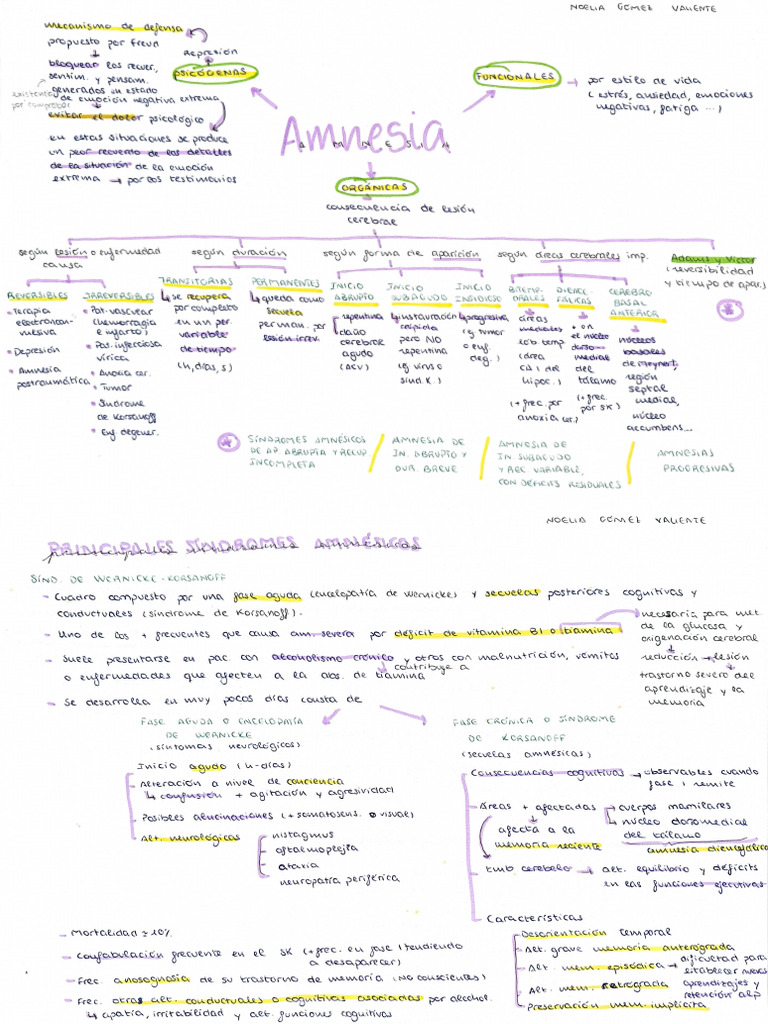 NOELIA GÓMEZ VALIENTE
mecanismo de defensa
propuesto por Freud
bloquear los recuer,
sentim. y pensam.
generados en estado
de emoción negativa extrema
existencia
por comprobar
evitar el dolor psicológico
en estas situaciones se produce
un peor recuerdo de los detalles
de la situación de la emoción
extrema → por los testimonios
Represión
PSICÓGENAS
Amnesia
AMNESIA
FUNCIONALES
por estilo de vida
(estrés, ansiedad, emociones
negativas, fatiga ...)
ORGÁNICAS
consecuencia de lesión
cerebral
según lesión o enfermedad
causa
REVERSIBLES
• Terapia
electroconvulsiva
• Depresión
• Amnesia
postraumática
IRREVERSIBLES
• Post-vascular
(hemorragia
e infarto)
• Pos. infecciosa
vírica
• Anoxia cer.
• Tumor
• Síndrome
de Korsakoff
• Enf degener.
según duración
TRANSITORIAS
se recupera
por completo
en un per.
variable
de tiempo
(h, días, s)
PERMANENTES
queda como
secuela
perman. por
lesión irrev.
según forma de aparición
INICIO
ABRUPTO
repentina
daño
cerebral
agudo
(ACV)
INICIO
SUBAGUDO
instauración
rápida
pero NO
repentina
(ej virus o
sínd. K.)
INICIO
INSIDIOSO
progresiva
(ej tumor
o enf.
deg.)
según áreas cerebrales imp.
BITEMPORALES
áreas
mediales
lób temp.
(área
CA1 del
hipoc.)
(+ frec. por
anoxia cer.)
DIENCEFÁLICAS
+ en
el núcleo
dorso-
medial
del
tálamo
(+ frec.
por SK)
CEREBRO
BASAL
ANTERIOR
núcleos
basales
de Meynert,
región
septal
medial,
núcleo
accumbens...
Adams y Victor
(reversibilidad
y tiempo de apar.)
SÍNDROMES AMNÉSICOS
DE AP. ABRUPTA Y RECUP
INCOMPLETA
AMNESIA DE
IN. ABRUPTO Y
DUR. BREVE
AMNESIA DE
IN. SUBAGUDO
Y REC VARIABLE,
CON DÉFICITS RESIDUALES
AMNESIAS
PROGRESIVAS
NOELIA GÓMEZ VALIENTE
PRINCIPALES SÍNDROMES AMNÉSICOS
principales síndromes amnésicos
SÍND. DE WERNICKE-KORSAKOFF
- Cuadro compuesto por una fase aguda (encefalopatía de Wernicke) y secuelas posteriores cognitivas y
conductuales (síndrome de Korsakoff).
- Uno de los + frecuentes que causa am. severa por déficit de vitamina B1 o tiamina
necesaria para met.
de la glucosa y
oxigenación cerebral
reducción → lesión
trastorno severo del
aprendizaje y la
memoria
- Suele presentarse en pac. con alcoholismo crónico y otros con malnutrición, vómitos
o enfermedades que afecten a la abs. de tiamina
contribuye a
- Se desarrolla en muy pocos días consta de
FASE AGUDA O ENCEFALOPATÍA
DE WERNICKE
(síntomas neurológicos)
Inicio agudo (h-días)
Alteración a nivel de conciencia
confusión + agitación y agresividad
Posibles alucinaciones (+ somatosens. o visual)
Alt. neurológicas
nistagmus
oftalmoplejía
ataxia
neuropatía periférica
FASE CRÓNICA O SÍNDROME
DE KORSAKOFF
(secuelas amnésicas)
Consecuencias cognitivas → observables cuando
fase 1 remite
Áreas + afectadas → cuerpos mamilares
núcleo dorsomedial
del tálamo
afecta a la
memoria reciente
amnesia diencefálica
tmb cerebelo → alt. equilibrio y déficits
en las funciones ejecutivas
Características
Desorientación temporal
Alt. grave memoria anterógrada
Alt. mem. episódica → dificultad para
establecer nuevos
aprendizajes y
retención alp
Alt. mem. retrógrada
Preservación mem. implícita
- Mortalidad ≥ 10%
- Confabulación frecuente en el SK (+ frec. en fase 1 tendiendo
a desaparecer)
- Frec. anosognosia de su trastorno de memoria (NO conscientes)
- Frec. otras alt. conductuales o cognitivas asociadas por alcohol.
apatía, irritabilidad y alt. funciones cognitivas